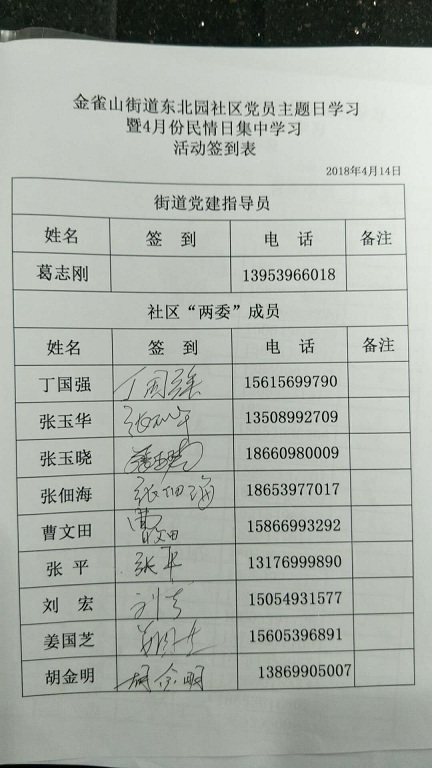 金雀山街道东北园社区党员主题日学习
暨4月份民情日集中学习
活动签到表
2018年4月14日
街道党建指导员
姓名 签 到 电 话 备注
葛志刚 13953966018
社区“两委”成员
姓名 签 到 电 话 备注
丁国强 丁国强 15615699790
张玉华 张玉华 13508992709
张玉晓 18660980009
张佃海 张佃海 18653977017
曹文田 曹文田 15866993292
张 平 张平 13176999890
刘 宏 刘宏 15054931577
姜国芝 姜国芝 15605396891
胡金明 胡金明 13869905007